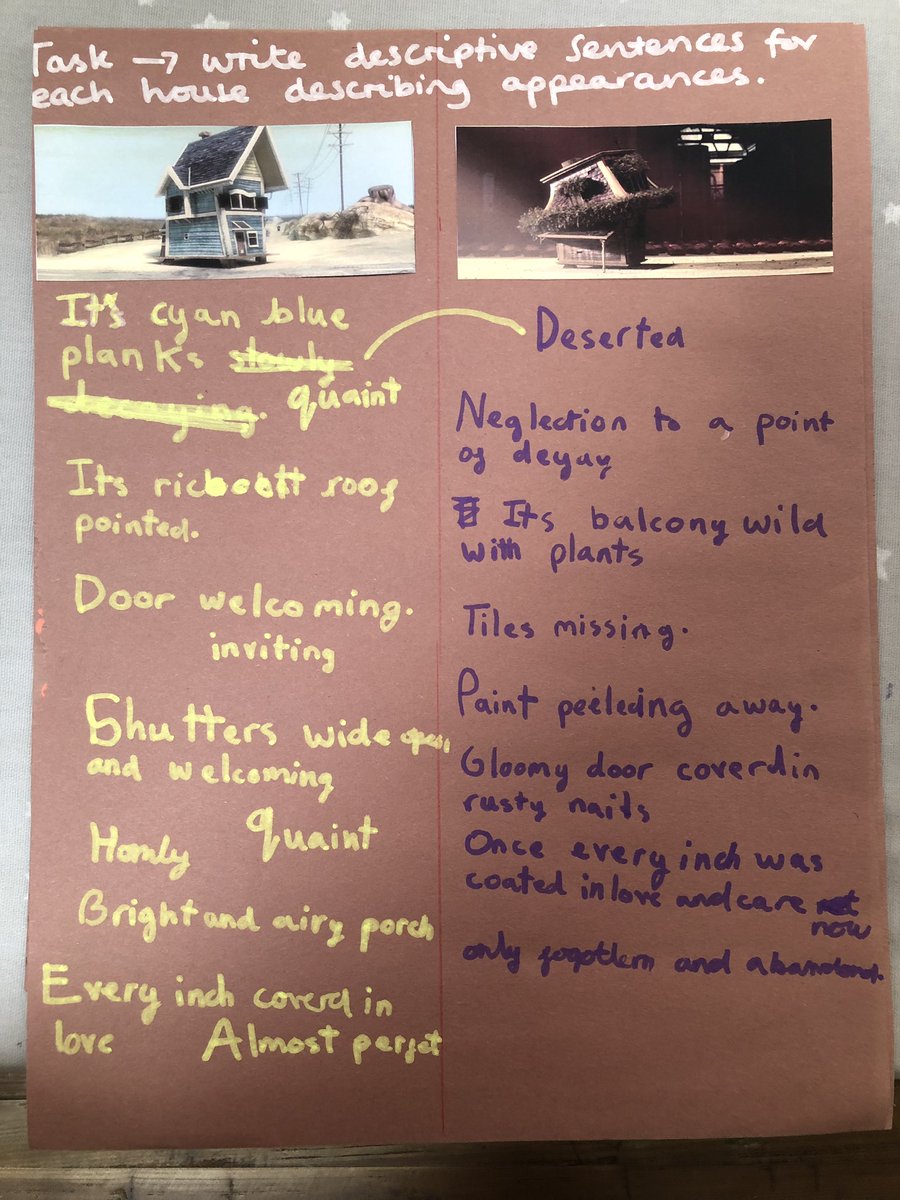 Task → write descriptive sentences for
each house describing appearances.
It's cyan blue
planks slowly
decaying. quaint
Its ricboott roof
pointed.
Door welcoming.
inviting
Shutters wide open
and welcoming
Homly quaint
Bright and airy porch
Every inch coverd in
love Almost perfet
Deserted
Neglection to a point
of deyay
Its balcony wild
with plants
Tiles missing.
Paint peeleing away.
Gloomy door coverd in
rusty nails
Once every inch was
coated in love and care
now
only fogottern and abandond.